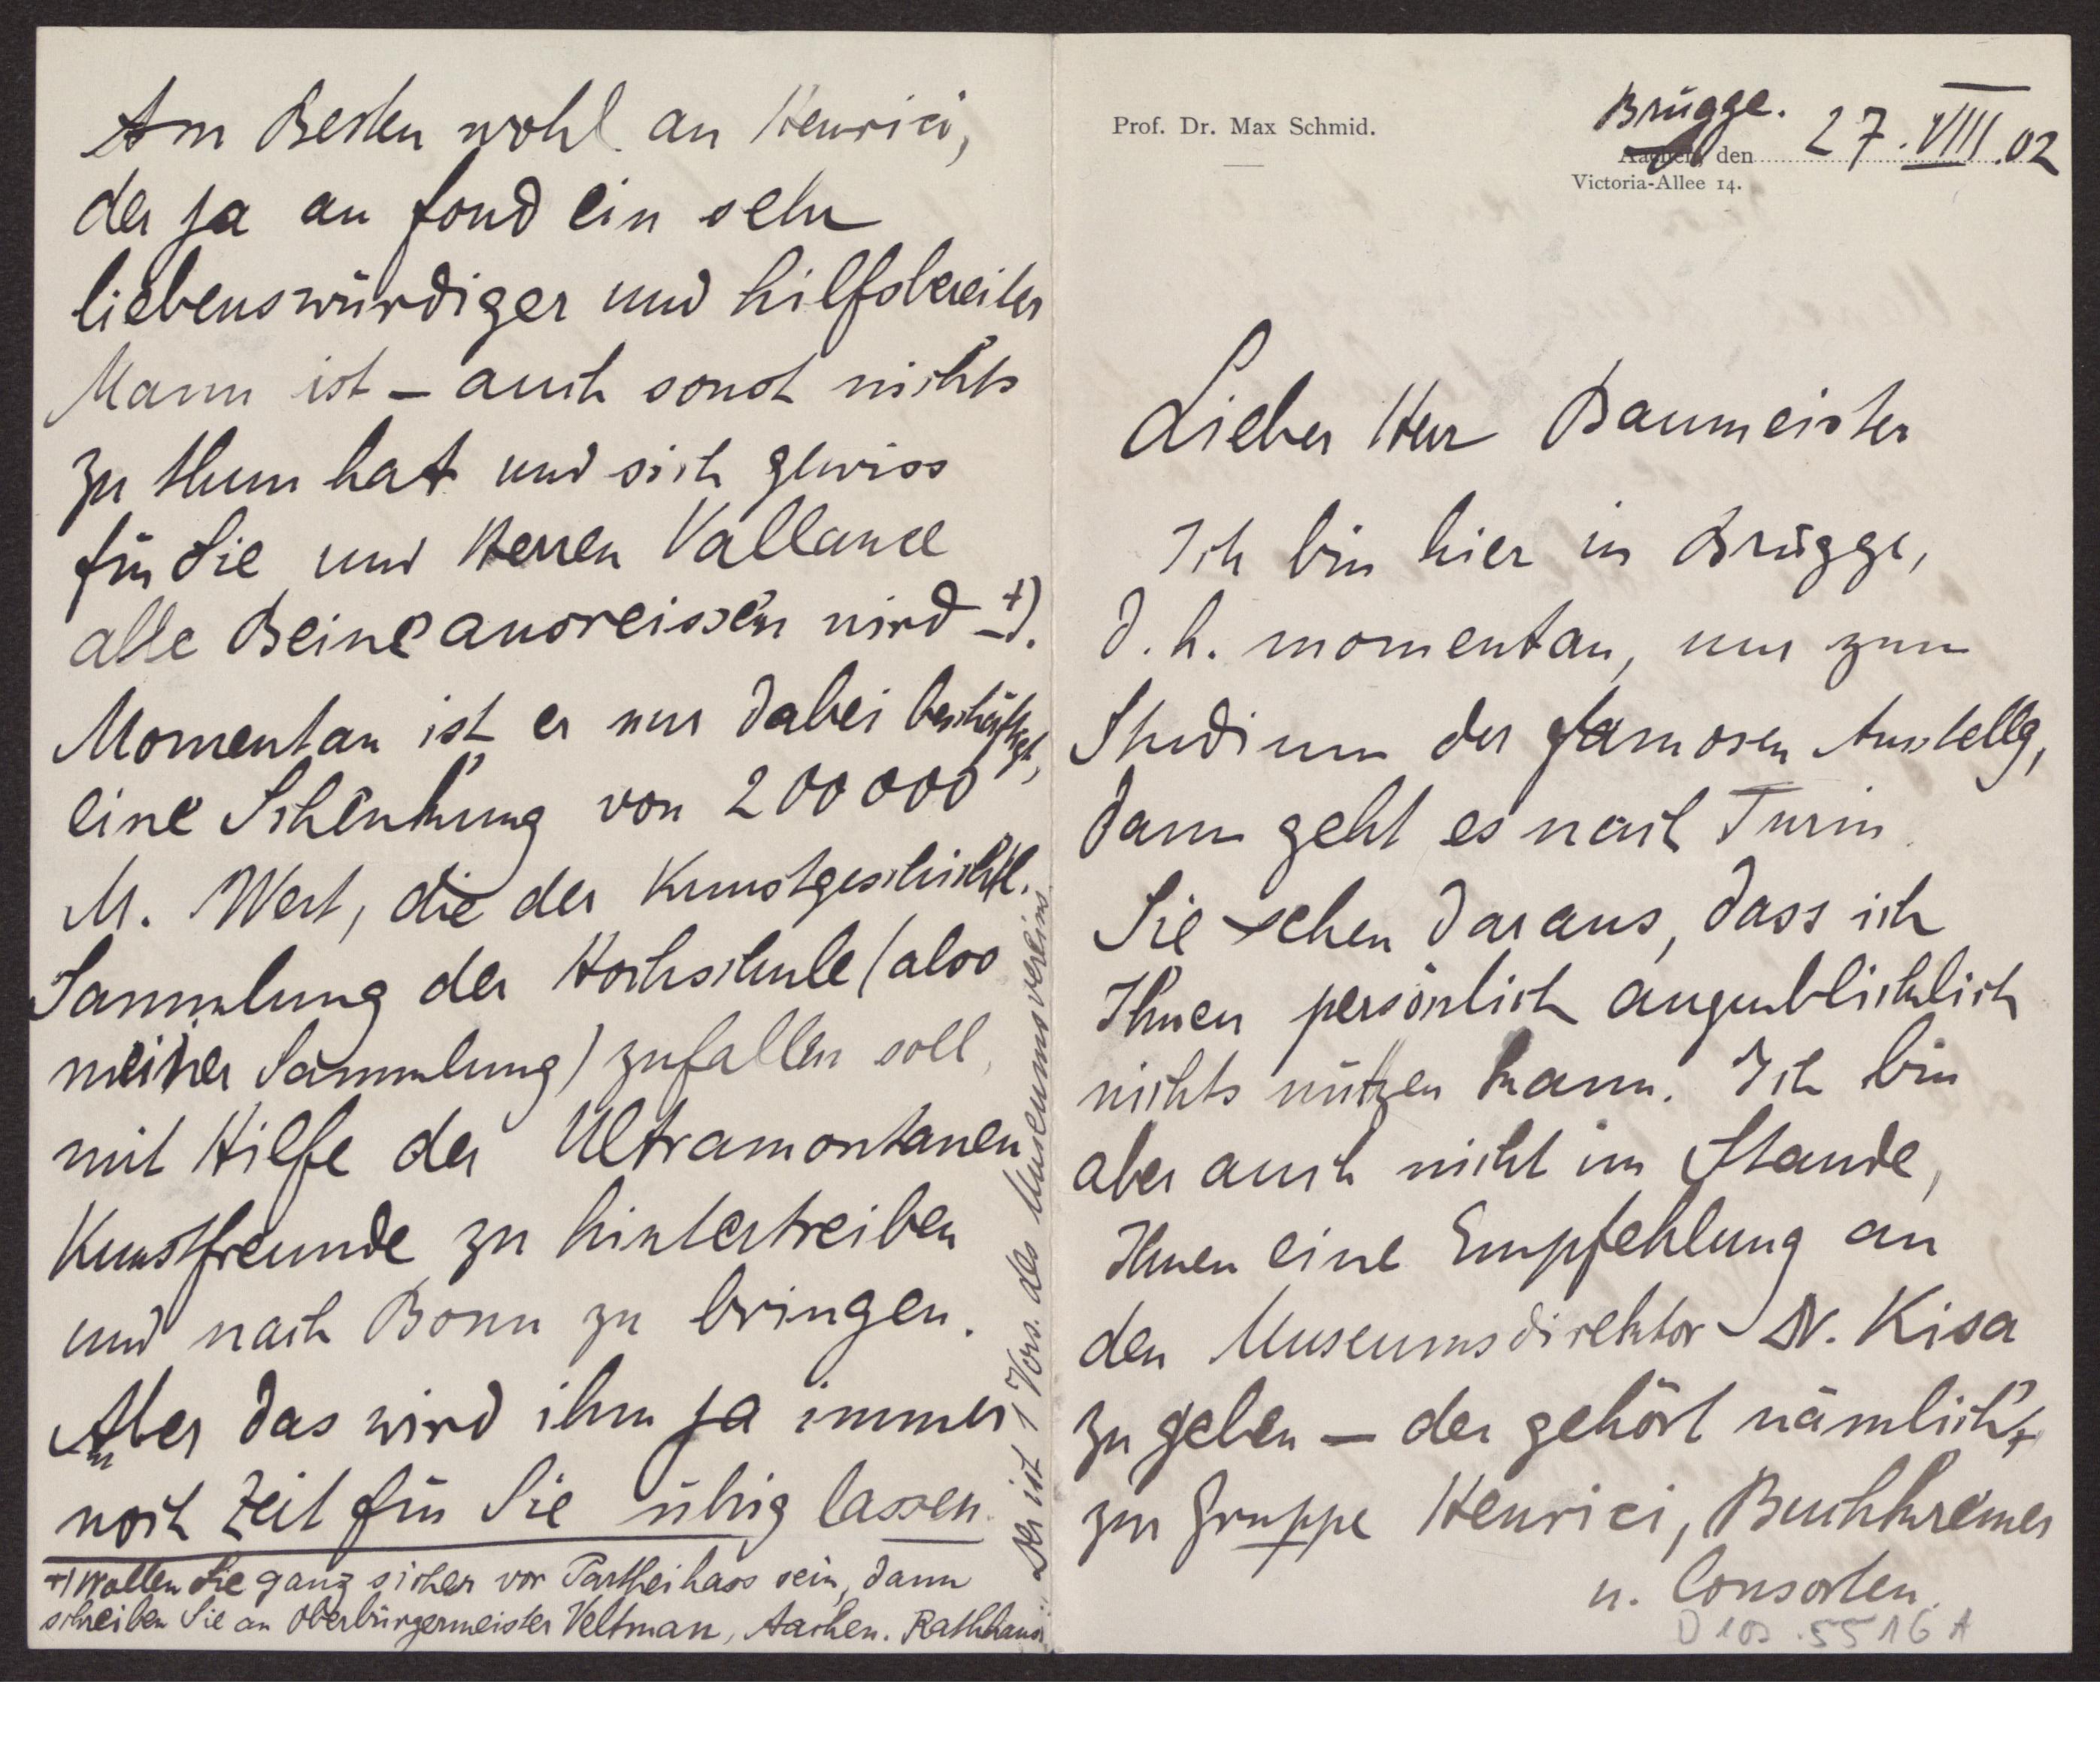 Prof. Dr. Max Schmid.
Brügge.
Aachen, den 27. VIII. 02
Victoria-Allee 14.
Lieber Herr Baumeister
Ich bin hier in Brügge,
d. h. momentan, nur zum
Studium der famosen Ausstellg,
dann geht es nach Turin.
Sie sehen daraus, dass ich
Ihnen persönlich augenblicklich
nichts nützen kann. Ich bin
aber auch nicht im Stande,
Ihnen eine Empfehlung an
den Museumsdirektor Dr. Kisa
zu geben – der gehört nämlich
zur Gruppe Henrici, Buchkremer
u. Consorten.
D 102.5516 A
Am Besten wohl an Henrici,
der ja au fond ein sehr
liebenswürdiger und hilfsbereiter
Mann ist – auch sonst nichts
zu thun hat und sich gewiss
für Sie und Herren Vallance
alle Beine ausreissen wird +).
Momentan ist er nur dabei beschäftigt,
eine Schenkung von 200000
M. Wert, die der Kunstgeschichtl.
Sammlung der Hochschule (also
meiner Sammlung) zufallen soll,
mit Hilfe der Ultramontanen
Kunstfreunde zu hintertreiben
und nach Bonn zu bringen.
Aber das wird ihm ja immer
noch Zeit für Sie übrig lassen.
+) Wollen Sie ganz sicher vor Partheihass sein, dann
schreiben Sie an Oberbürgermeister Veltman, Aachen. Rathhaus.
Der ist 1 Vors. des Museumsvereins